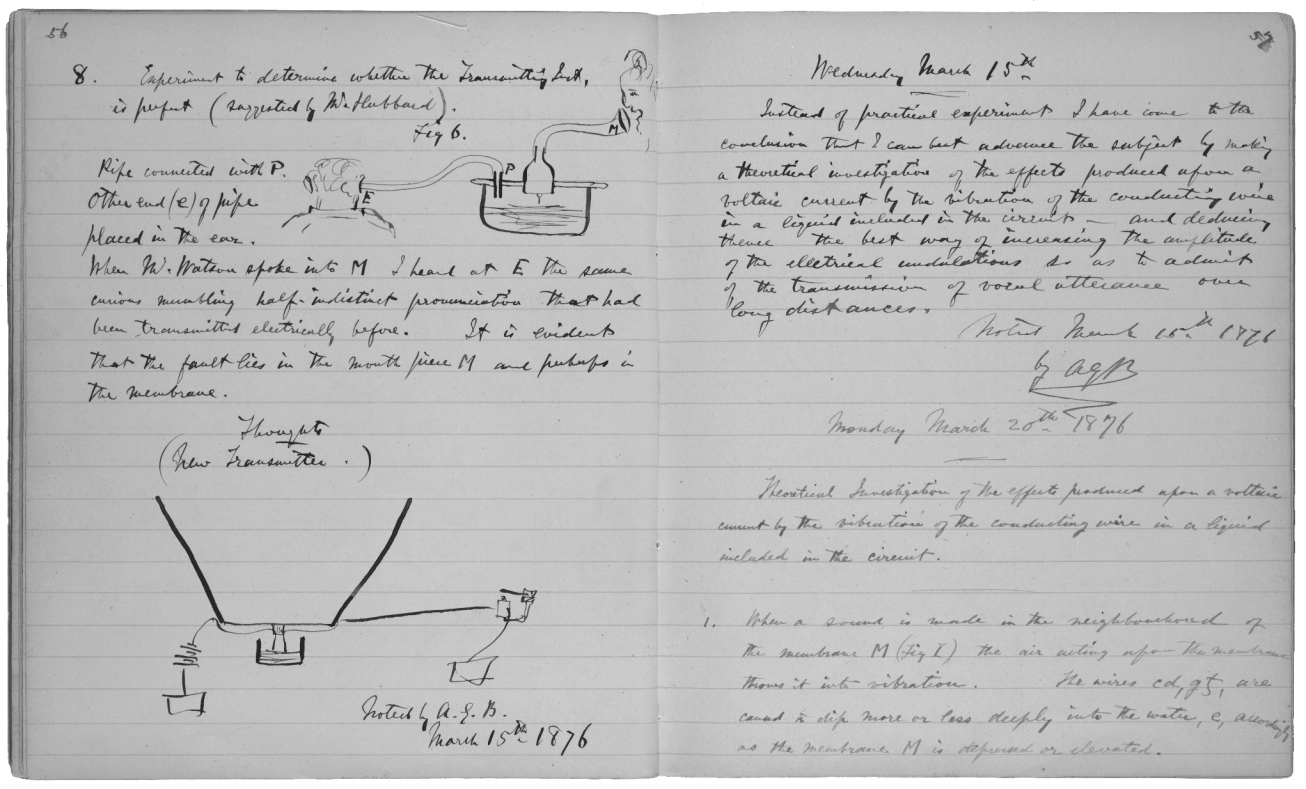 56
8. Experiment to determine whether the Transmitting Inst.
is perfect (suggested by Mr. Hubbard).
Fig 6.
M
Pipe connected with P.
P
E
Other end (e) of pipe
placed in the ear.
When Mr. Watson spoke into M I heard at E the same
curious mumbling half-indistinct pronunciation that had
been transmitted electrically before. It is evident
that the fault lies in the mouth piece M and perhaps in
the membrane.
Thoughts
(New Transmitter.)
Noted by A. G. B.
March 15th 1876
57
Wednesday March 15th
Instead of practical experiment I have come to the
conclusion that I can best advance the subject by making
a theoretical investigation of the effects produced upon a
voltaic current by the vibration of the conducting wire
in a liquid included in the circuit — and deducing
thence the best way of increasing the amplitude
of the electrical undulations so as to admit
of the transmission of vocal utterance over
long distances.
Noted March 15th 1876
by AGB
Monday March 20th 1876
Theoretical Investigation of the effects produced upon a voltaic
current by the vibration of the conducting wire in a liquid
included in the circuit.
1. When a sound is made in the neighbourhood of
the membrane M (Fig I) the air acting upon the membrane
throws it into vibration. The wires cd, are
caused to dip more or less deeply into the water, e, accordingly
as the membrane M is depressed or elevated.